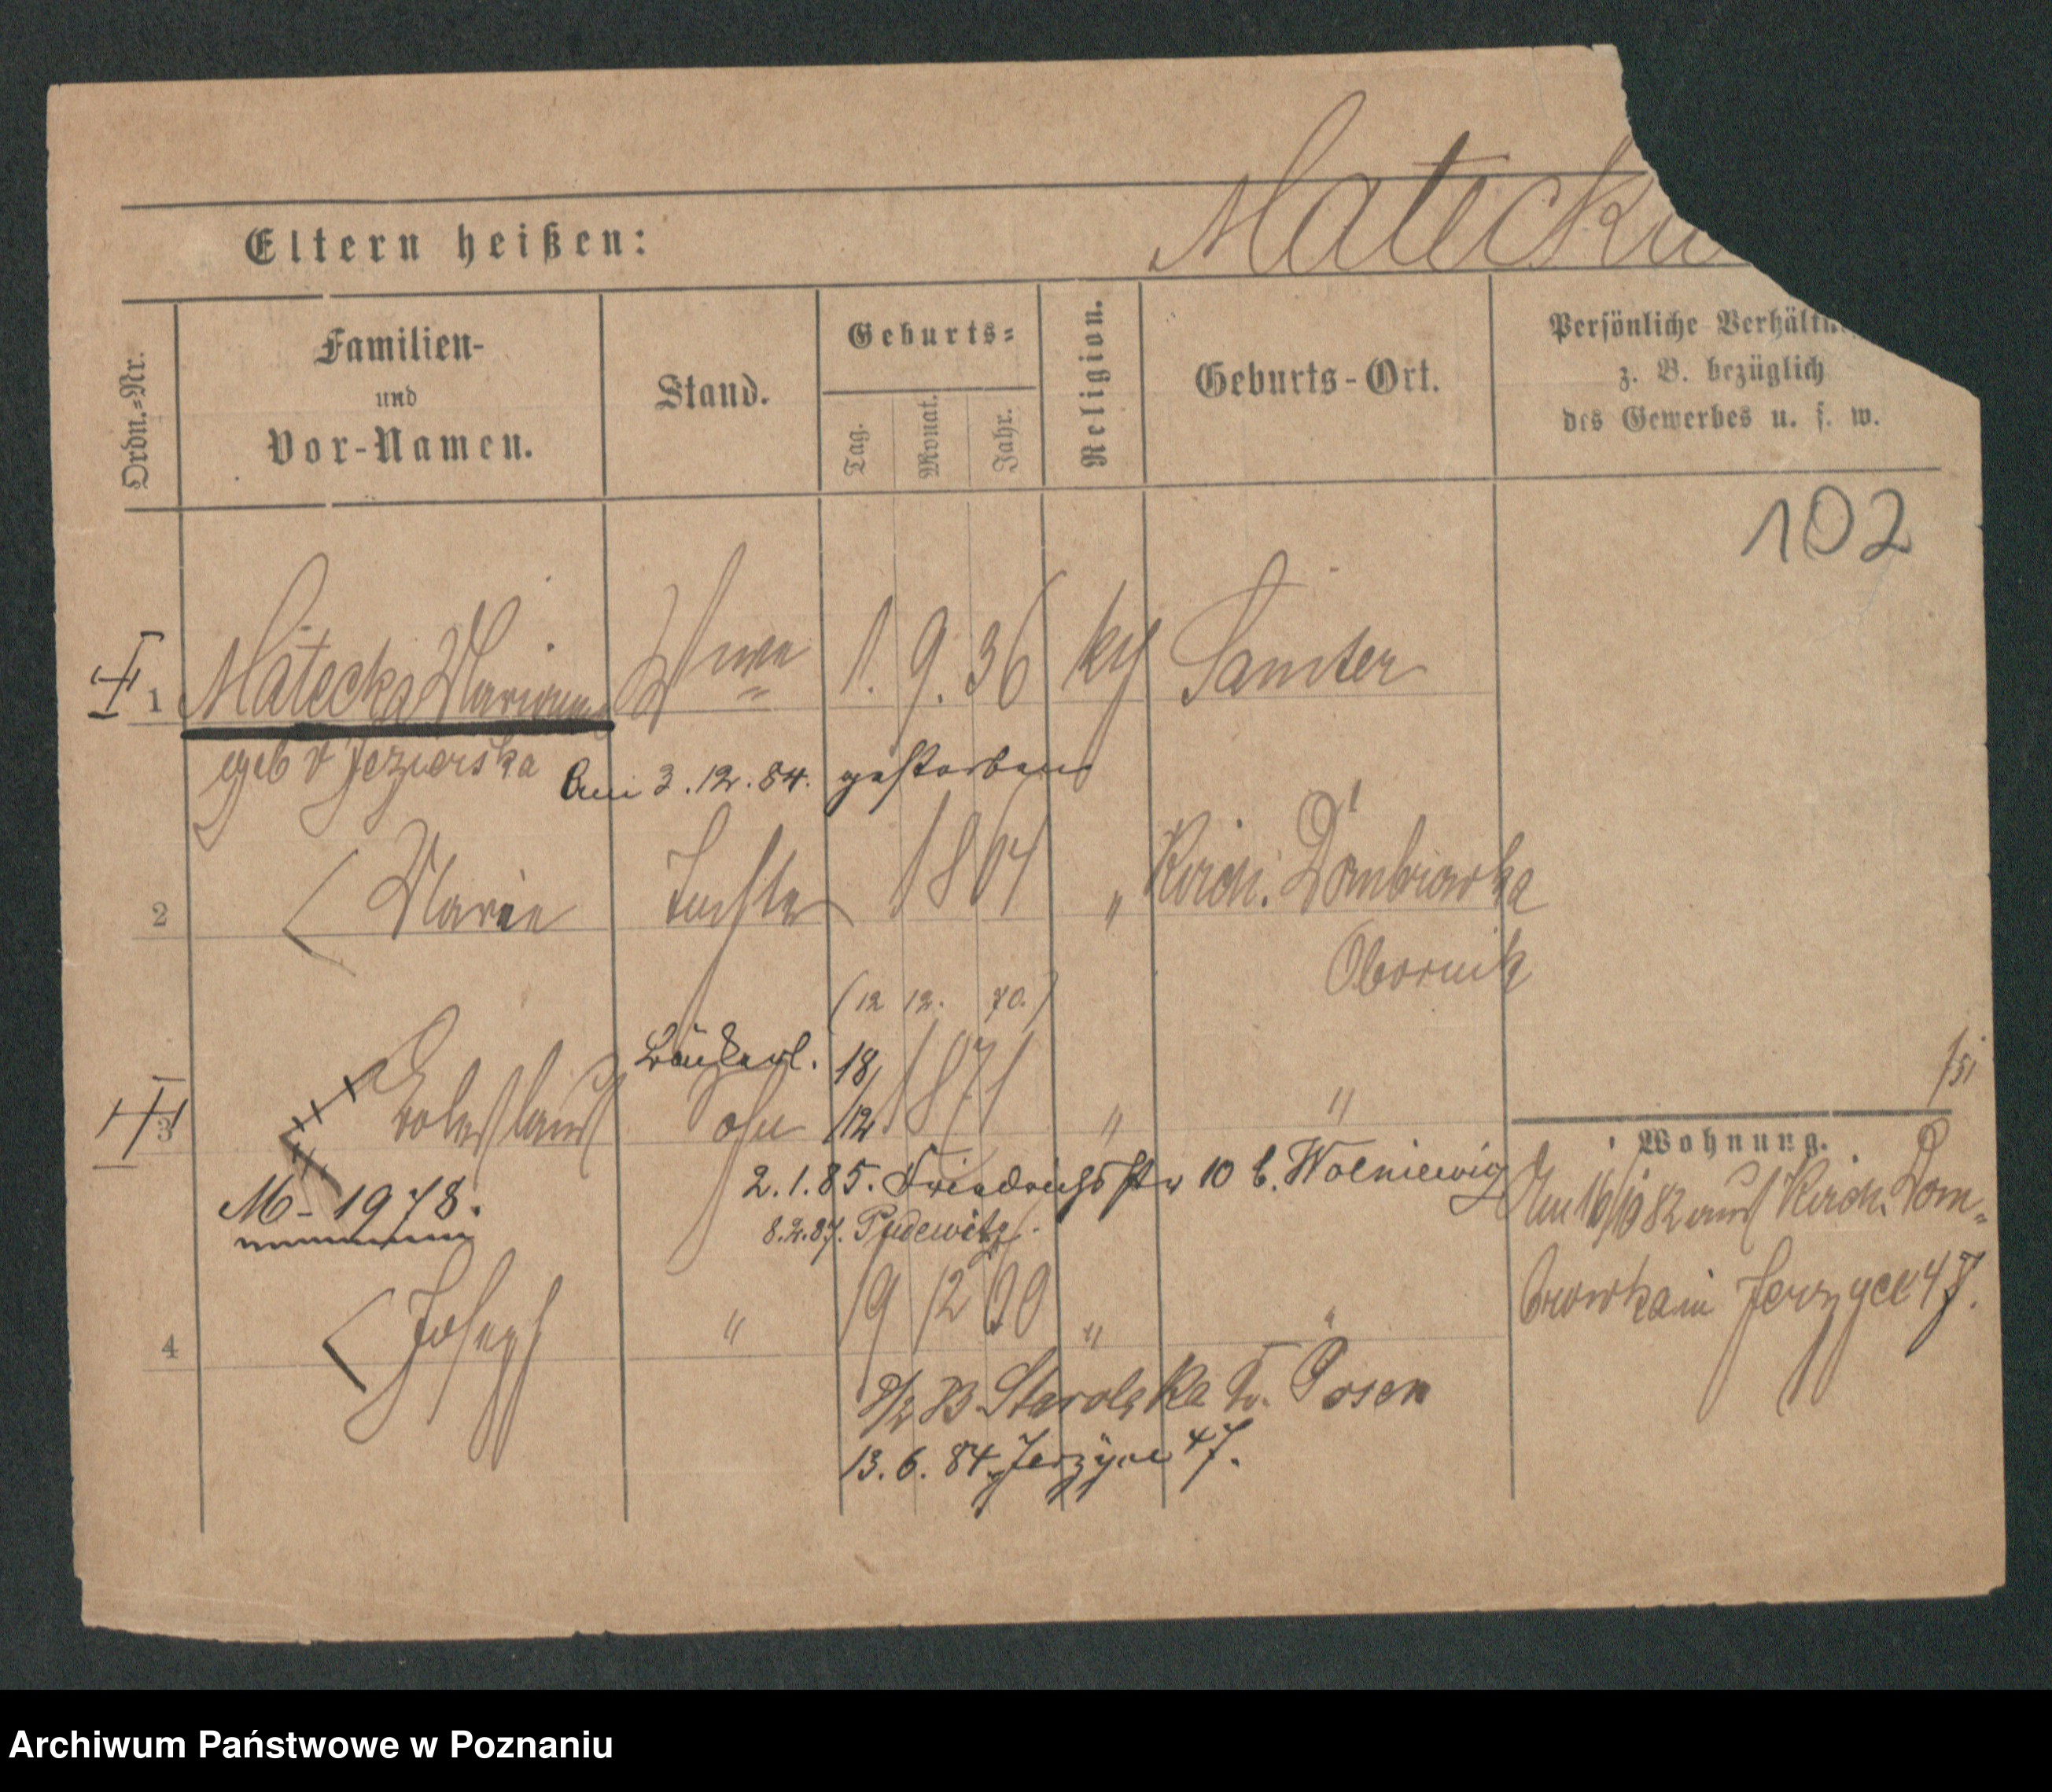 Matecka
Eltern heißen:
Ordn.=Nr.
Familien-
und
Vor-Namen.
Stand.
Geburts=
Tag.
Monat.
Jahr.
Religion.
Geburts-Ort.
Persönliche Verhältn
z. B. bezüglich
des Gewerbes u. s. w.
102
1 Matecka Marianna Wwe 1. 9. 36 kth Samter
geb v Jezierska
Am 3. 12. 84. gestorben
2 Marie Tochter 1864 " Kirch. Dombrowka
Obornik
(12 12. 70.)
Bäckerl. 18/12
3 Boleslaus Sohn 1871 " "
M- 1978.
2. 1. 85. Friedrichsstr 10 b. Wolniewicz
8.2.87. Pudewitz.
4 Joseph " 19 12 " "
Starolenka Kr. Posen
13. 6. 84. Jerzyce 47.
Wohnung.
Am 16/10 82 aus Kirch. Dom-
browka in Jerzyce 47.
Archiwum Państwowe w Poznaniu